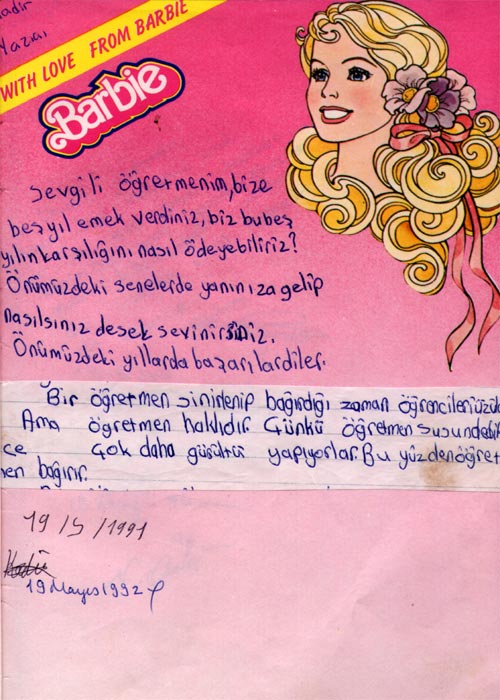 adir
Yazıcı
WITH LOVE FROM BARBIE
Barbie
Sevgili öğretmenim, bize
beş yıl emek verdiniz, biz bu beş
yılın karşılığını nasıl ödeyebiliriz?
Önümüzdeki senelerde yanınıza gelip
nasılsınız desek sevinirsiniz.
Önümüzdeki yıllarda başarılar diler.
Bir öğretmen sinirlenip bağırdığı zaman öğrencileri üzülü
Ama öğretmen haklıdır Çünkü öğretmen susun
çe Çok daha gürültü yapıyorlar. Bu yüzden öğret
en bağırır.
19/5/1991
19 Mayıs 1992